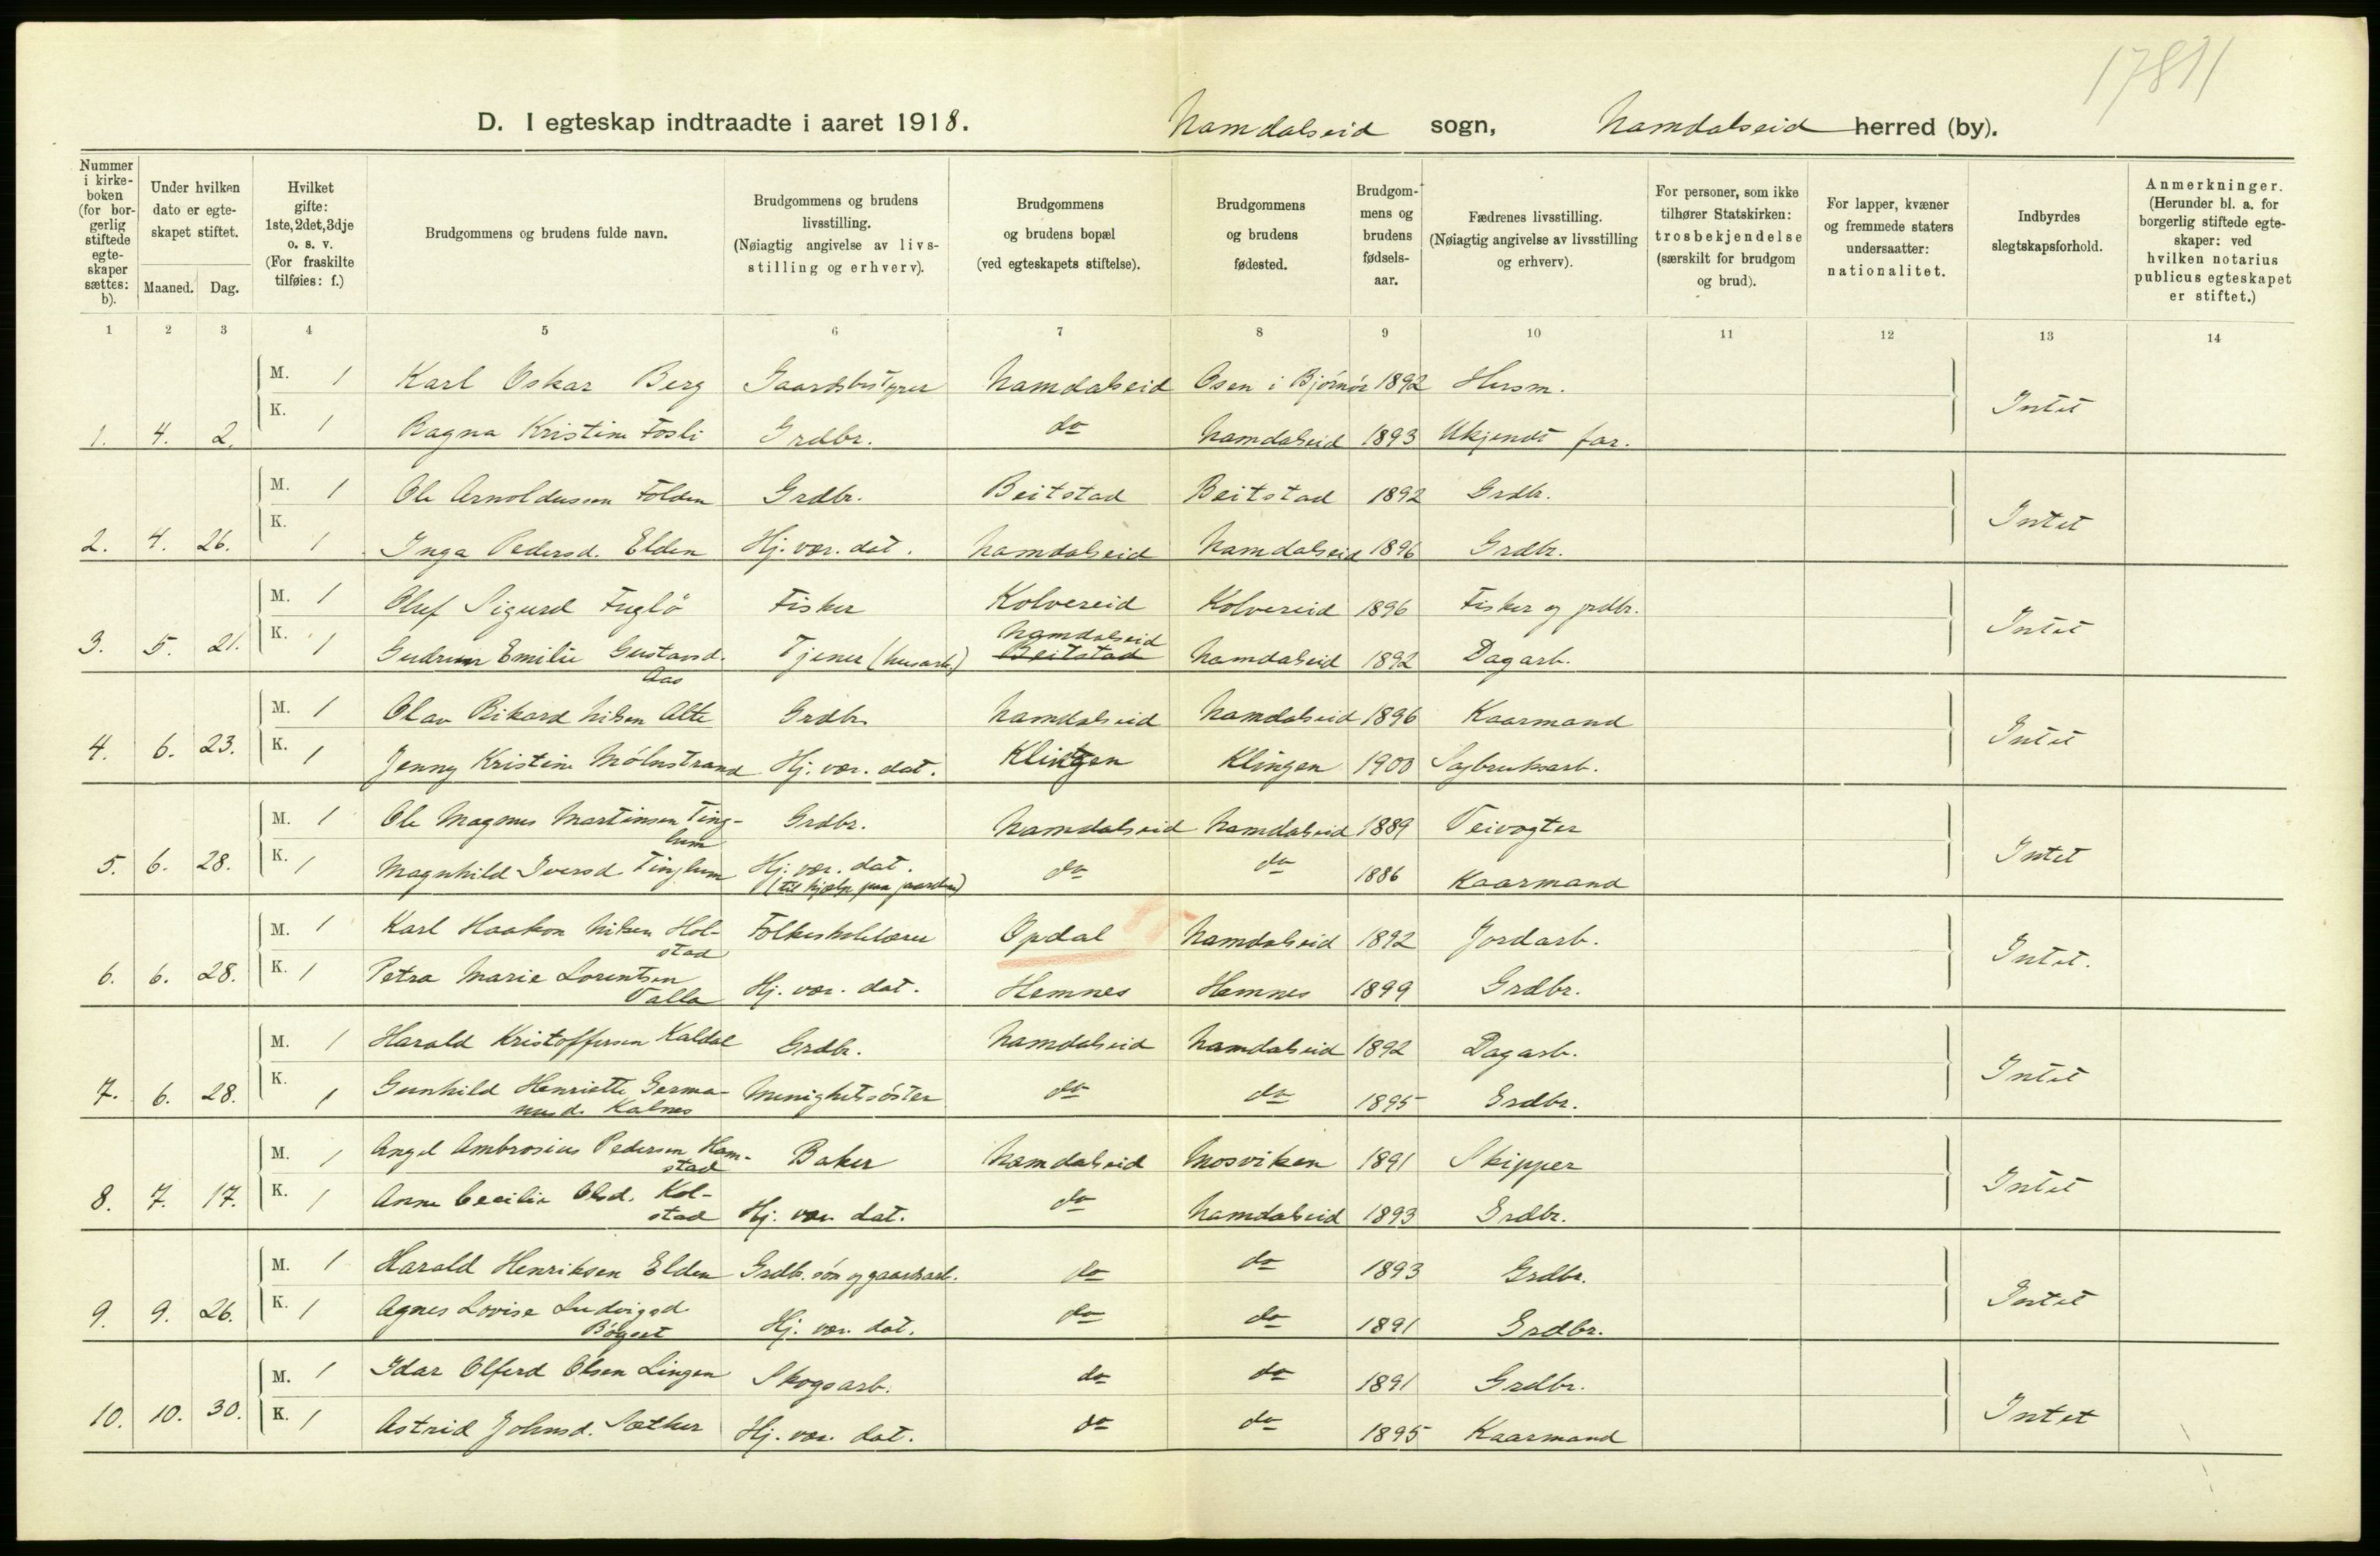 17811
D. I egteskap indtraadte i aaret 1918. Namdalseid sogn, Namdalseid herred (by).
Nummer i kirke-boken (for bor-gerlig stiftede egte-skaper sættes: b).
Under hvilken dato er egte-skapet stiftet.
Maaned. Dag.
Hvilket gifte: 1ste, 2det, 3dje o. s. v. (For fraskilte tilføies: f.)
Brudgommens og brudens fulde navn.
Brudgommens og brudens livsstilling. (Nøiagtig angivelse av livs-stilling og erhverv).
Brudgommens og brudens bopæl (ved egteskapets stiftelse).
Brudgommens og brudens fødested.
Brudgom-mens og brudens fødsels-aar.
Fædrenes livsstilling. (Nøiagtig angivelse av livsstilling og erhverv).
For personer, som ikke tilhører Statskirken: trosbekjendelse (særskilt for brudgom og brud).
For lapper, kvæner og fremmede staters undersaatter: nationalitet.
Indbyrdes slegtskapsforhold.
Anmerkninger. (Herunder bl. a. for borgerlig stiftede egte-skaper: ved hvilken notarius publicus egteskapet er stiftet.)
1 2 3 4 5 6 7 8 9 10 11 12 13 14
M. 1 Karl Oskar Berg Gaardsbestyrer Namdalseid Osen i Bjørnør 1892 Husm.
1. 4. 2. K. 1 Ragna Kristine Fosli Grdbr. do Namdalseid 1893 Ukjendt far. Intet
M. 1 Ole Arnoldussen Folden Grdbr. Beitstad Beitstad 1892 Grdbr.
2. 4. 26. K. 1 Inga Pedersd. Elden Hj. vær. dat. Namdalseid Namdalseid 1896 Grdbr. Intet
M. 1 Oluf Sigurd Fuglö Fisker Kolvereid Kolvereid 1896 Fisker og grdbr.
3. 5. 21. K. 1 Gudrun Emilie Gustavsd. Aas Tjener (husarb.) Namdalseid Beitstad Namdalseid 1892 Dagarb. Intet
M. 1 Olav Rikard Nilsen Alte Grdbr. Namdalseid Namdalseid 1896 Kaarmand
4. 6. 23. K. 1 Jenny Kristine Mölnstrand Hj. vær. dat. Klingen Klingen 1900 Sagbruksarb. Intet
M. 1 Ole Magnus Martinsen Ting-lum Grdbr. Namdalseid Namdalseid 1889 Veivogter
5. 6. 28. K. 1 Magnhild Iversd. Tinglum Hj. vær. dat. (til hjelp paa gaarden) do do 1886 Kaarmand Intet
M. 1 Karl Haakon Nilsen Hol-stad Folkeskolelærer Opdal Namdalseid 1892 Jordarb.
6. 6. 28. K. 1 Petra Marie Lorentsen Valla Hj. vær. dat. Hemnes Hemnes 1899 Grdbr. Intet.
M. 1 Harald Kristoffersen Kaldal Grdbr. Namdalseid Namdalseid 1892 Dagarb.
7. 6. 28. K. 1 Gunhild Henriette Germa-nusd. Kalnes Menighetssöster do do 1895 Grdbr. Intet
M. 1 Angel Ambrosius Pedersen Ham-stad Baker Namdalseid Mosviken 1891 Skipper
8. 7. 17. K. 1 Anna Cecilie Olsd. Kol-stad Hj. vær. dat. do Namdalseid 1893 Grdbr. Intet
M. 1 Harald Henriksen Elden Grdbr. søn og gaardsarb. do do 1893 Grdbr.
9. 9. 26. K. 1 Agnes Lovise Ludvigsd. Bøgset Hj. vær. dat. do do 1891 Grdbr. Intet
M. 1 Idar Olferd Olsen Lingen Skogsarb. do do 1891 Grdbr.
10. 10. 30. K. 1 Astrid Johnsd. Sæther Hj. vær. dat. do do 1895 Kaarmand Intet